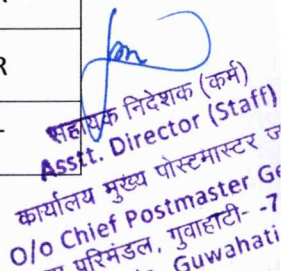 R
सहायक निदेशक (कर्म)
Asstt. Director (Staff)
कार्यालय मुख्य पोस्टमास्टर
O/o Chief Postmaster Ge
परिमंडल, गुवाहाटी- -7
Guwahati